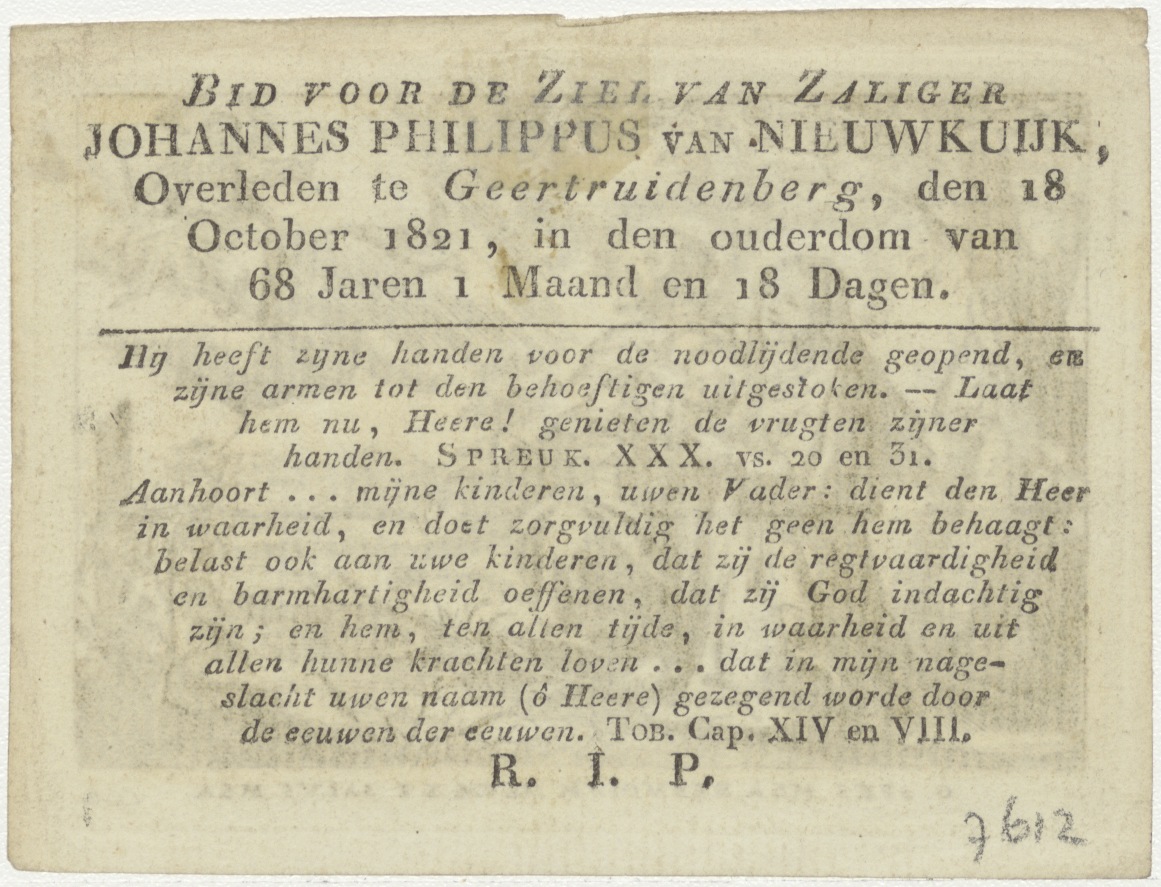 BID VOOR DE ZIEL VAN ZALIGER
JOHANNES PHILIPPUS VAN NIEUWKUIJK,
Overleden te Geertruidenberg, den 18
October 1821, in den ouderdom van
68 Jaren 1 Maand en 18 Dagen.
Hij heeft zijne handen voor de noodlijdende geopend, en
zijne armen tot den behoeftigen uitgestoken. — Laat
hem nu, Heere! genieten de vrugten zijner
handen. SPREUK. XXX. vs. 20 en 31.
Aanhoort ... mijne kinderen, uwen Vader: dient den Heer
in waarheid, en doet zorgvuldig het geen hem behaagt:
belast ook aan uwe kinderen, dat zij de regtvaardigheid
en barmhartigheid oeffenen, dat zij God indachtig
zijn; en hem, ten allen tijde, in waarheid en uit
allen hunne krachten loven ... dat in mijn nage-
slacht uwen naam (ô Heere) gezegend worde door
de eeuwen der eeuwen. TOB. Cap. XIV en VIII.
R. I. P.
7612